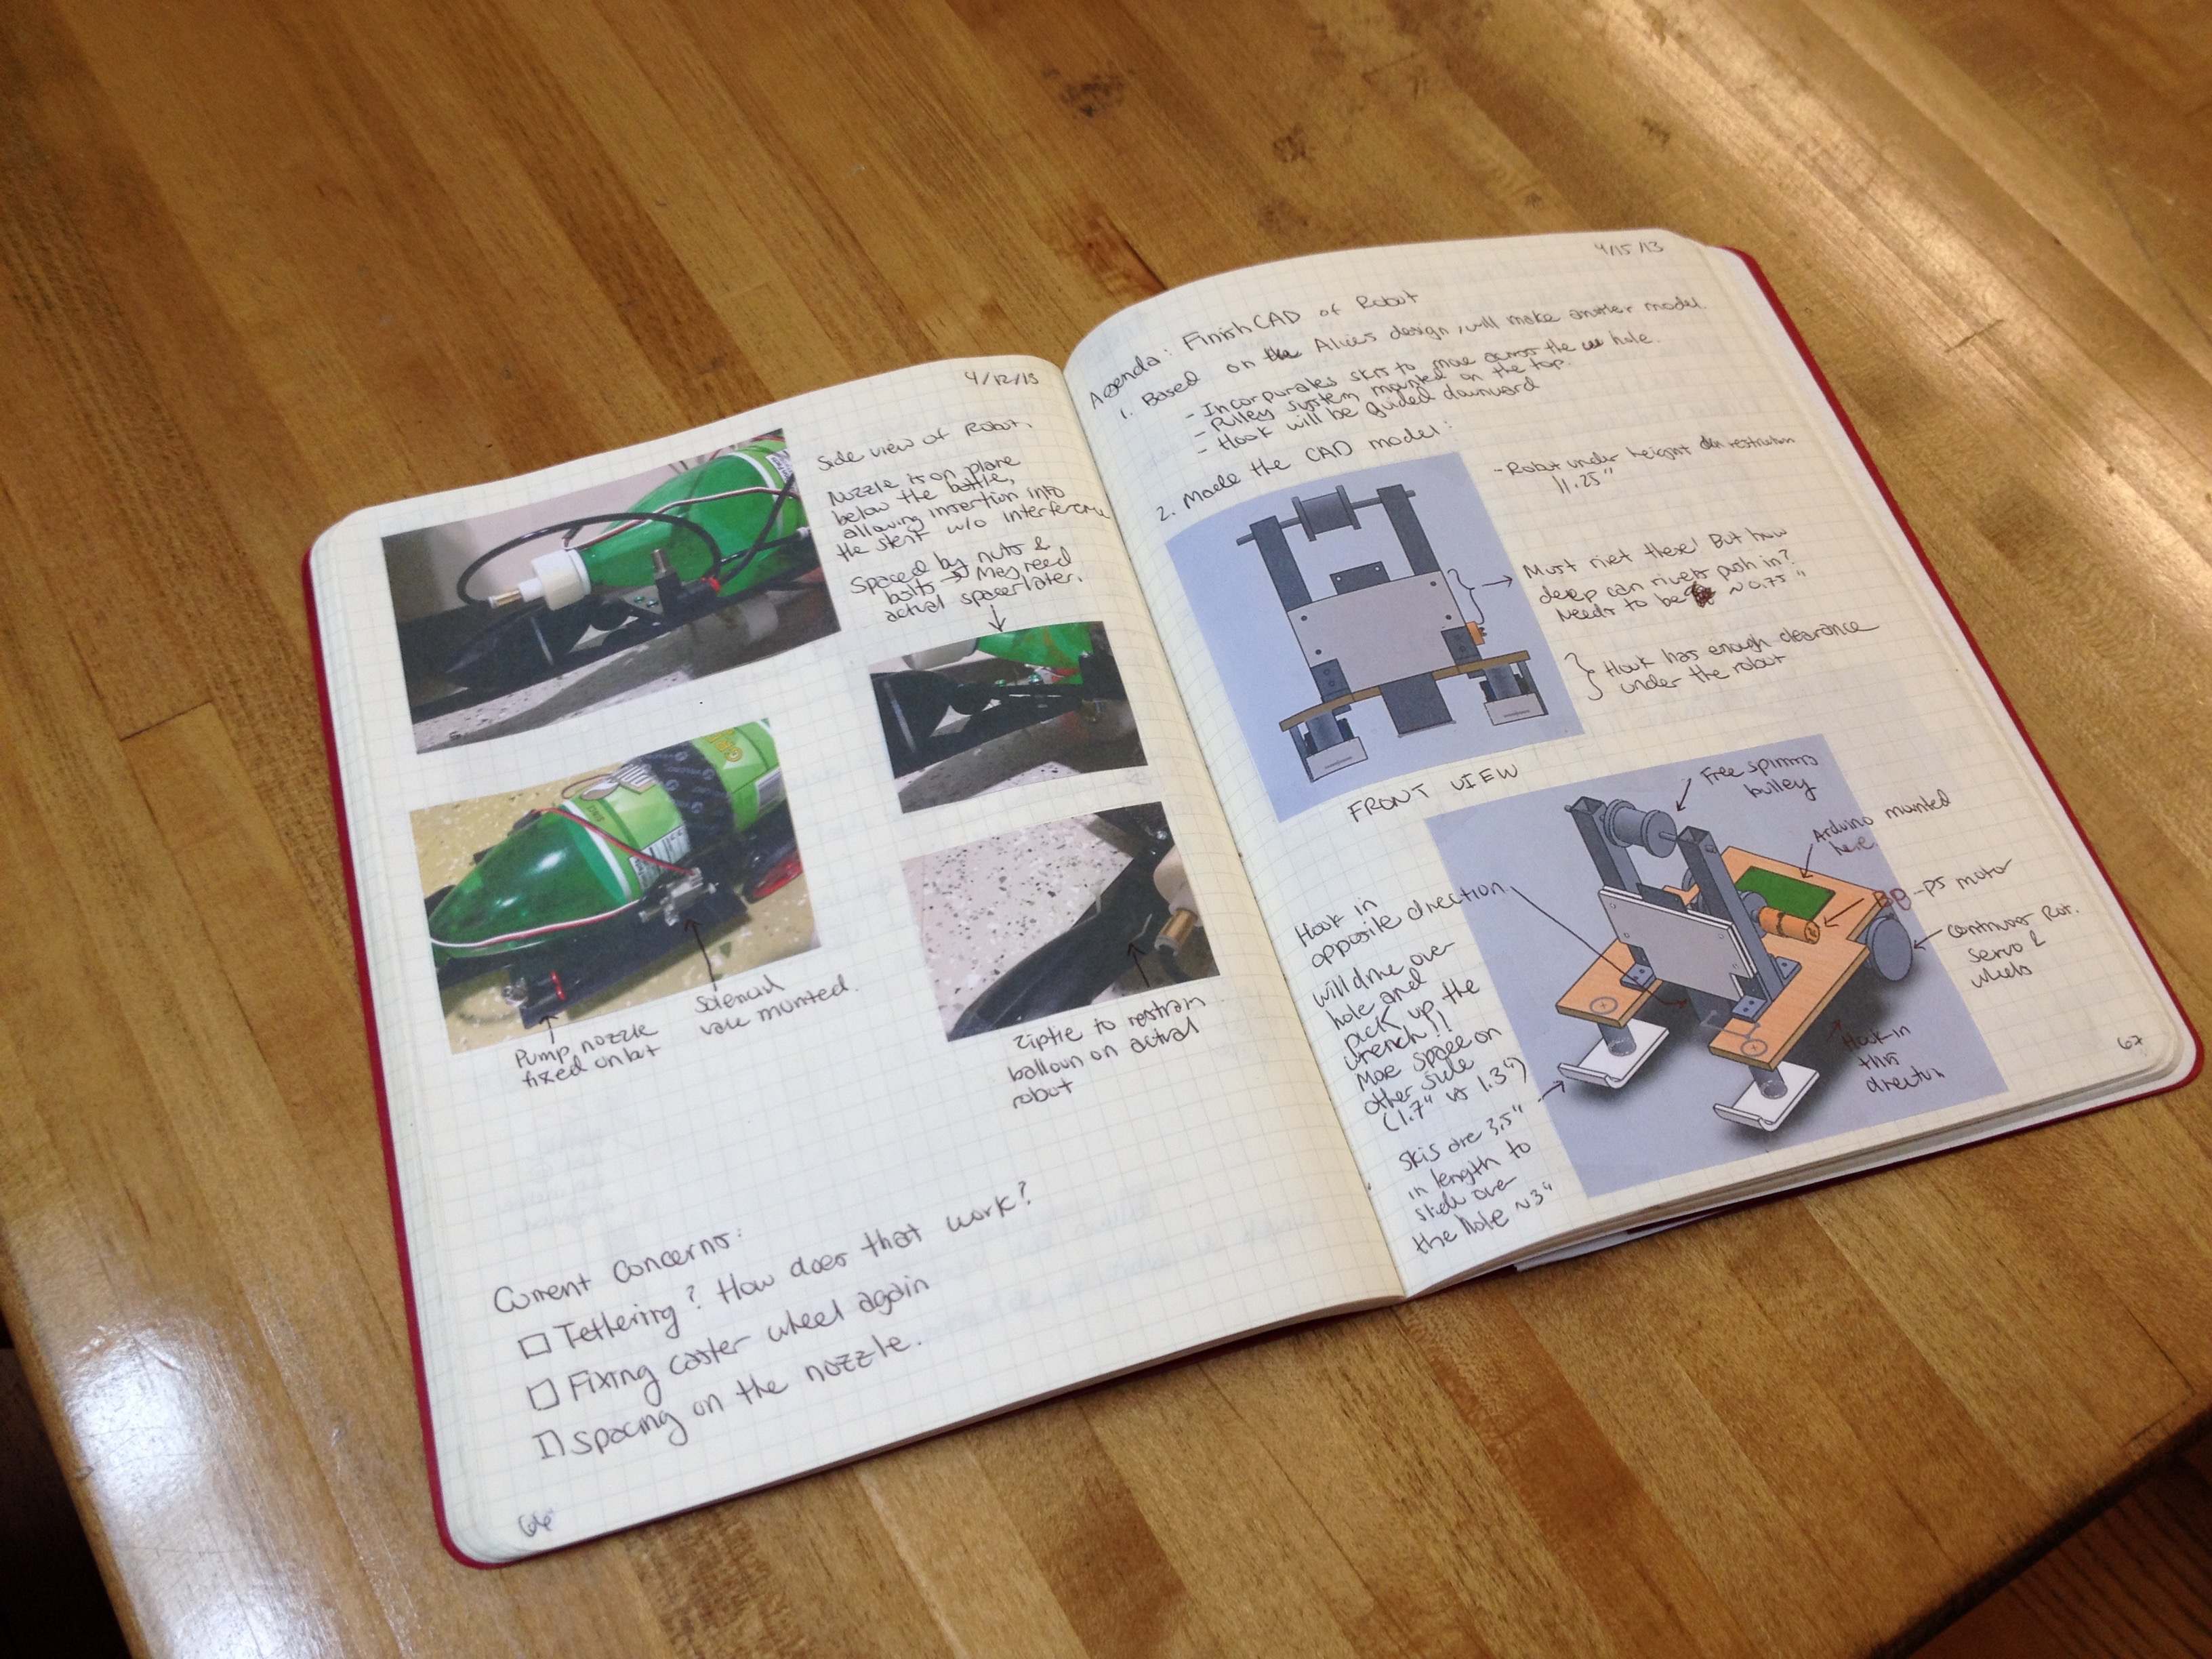 4/12/13
Side view of Robot.
Nozzle is on plane
below the bottle,
allowing insertion into
the stent w/o interference
Spaced by nuts &
bolts → May need
actual spacer later.
Pump nozzle
fixed on bot
Solenoid
valve mounted.
Ziptie to restrain
balloon on actual
robot
Current Concerns:
Tethering? How does that work?
Fixing caster wheel again
Spacing on the nozzle.
66
4/15/13
Agenda: Finish CAD of Robot
1. Based on the design, will make another model.
- Incorporates skis to move across the hole.
- Pulley system mounted on the top.
- Hook will be guided downward
2. Made the CAD model:
- Robot under height restriction
11.25"
Must rivet these! But how
deep can rivets push in?
Needs to be ~0.75"
Hook has enough clearance
under the robot
FRONT VIEW
Free spinning
pulley
Arduino mounted
here.
-PS motor
Continuous Rot.
Servo &
wheels
Hook in
this
direction
Hook in
opposite direction
will drive over
hole and
pick up the
wrench!!
More space on
other side
(1.7" vs 1.3")
Skis are 3.5"
in length to
slide over
the hole ~3"
67